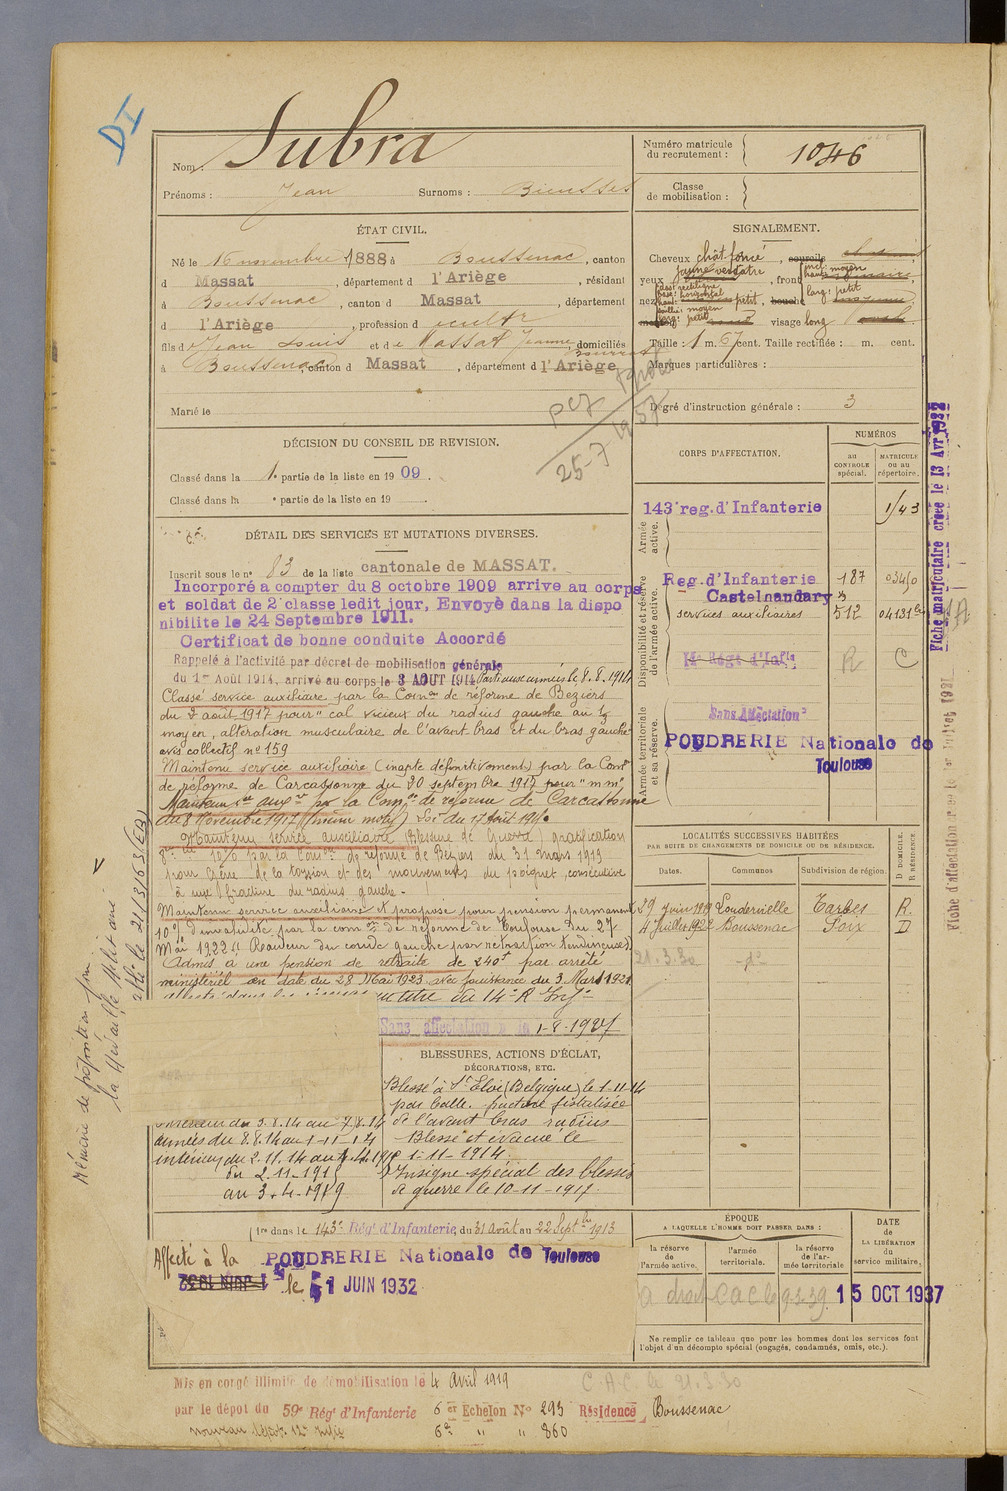 DI
Nom : Subra
Prénoms : Jean Surnoms :
Numéro matricule du recrutement : 1046
Classe de mobilisation :
ÉTAT CIVIL.
Né le 16 novembre 1888, à Boussenac, canton
d Massat, département d l'Ariège, résidant
à Boussenac, canton d Massat, département
d l'Ariège, profession d
fils de Jean Louis et de Massat Jeanne, domiciliés
à Boussenac, canton d Massat, département d l'Ariège
Marié le
25-7 1957
SIGNALEMENT.
Cheveux chât foncé, sourcils
yeux jaune verdâtre, front incl: moyen
haut:
larg: petit
nez dos: rectiligne
base: horizontal
haut: petit, bouche
saillie: moyen
larg: petit
menton visage long
Taille : 1 m. 67 cent. Taille rectifiée : m. cent.
Marques particulières :
Degré d'instruction générale : 3
DÉCISION DU CONSEIL DE REVISION.
Classé dans la 1. partie de la liste en 19 09.
Classé dans la • partie de la liste en 19 .
CORPS D'AFFECTATION.
NUMÉROS
au CONTROLE spécial.
MATRICULE ou au répertoire.
Armée active.
143e reg. d'Infanterie
Disponibilité et réserve de l'armée active.
Reg. d'Infanterie 187 03450
Castelnaudary
services auxiliaires 512 04131
R C
Armée territoriale et sa réserve.
Sans Affectation
POUDRERIE Nationale de
Toulouse
DÉTAIL DES SERVICES ET MUTATIONS DIVERSES.
Inscrit sous le n° 83 de la liste cantonale de MASSAT.
Incorporé a compter du 8 octobre 1909 arrive au corps
et soldat de 2e classe ledit jour, Envoyé dans la dispo
nibilite le 24 Septembre 1911.
Certificat de bonne conduite Accordé
Rappelé à l'activité par décret de mobilisation générale
du 1er Août 1914, arrivé au corps le 3 AOUT 1914 Parti aux armées le 8.8.1914
Classé service auxiliaire par la Comon de réforme de Beziers
du 2 août 1917 pour "cal vicieux du radius gauche au 1/3
moyen, altération musculaire de l'avant bras et du bras gauche
avis collectif n° 159
Maintenu service auxiliaire (inapte définitivement) par la Comon
de réforme de Carcassonne du 20 septembre 1917 pour "m m"
Maintenu ser auxre par la Comon de réforme de Carcassonne
du 8 Novembre 1917 (même motif) Loi du 17 Août 1915
Maintenu service auxiliaire (Blessure de Guerre) gratification
8e 10% par la Comon de réforme de Beziers du 31 mars 1919
pour Gêne de la torsion et des mouvements du poignet, consécutive
à une fracture du radius gauche.
Maintenu service auxiliaire et proposé pour pension permanente
10% d'invalidité par la comon de réforme de Toulouse du 27
Mai 1922 (Raideur du coude gauche par rétraction tendineuse)
Admis à une pension de retraite de 240f par arrêté
ministériel en date du 28 Mai 1923 avec jouissance du 3 Mars 1921
du 14e R Infie
Sans affectation le 1-8-1927
LOCALITÉS SUCCESSIVES HABITÉES
PAR SUITE DE CHANGEMENTS DE DOMICILE OU DE RÉSIDENCE.
Dates. Communes Subdivision de région. D DOMICILE. R RÉSIDENCE
29 Juin 1919 Loudervielle Tarbes R.
4 Juillet 1922 Boussenac Foix D
21.3.30 -do-
BLESSURES, ACTIONS D'ÉCLAT,
DÉCORATIONS, ETC.
Blessé à St Eloi (Belgique) le 1-11-14
par balle. fracture fistalisée
de l'avant bras radius
Blessé et évacué le
1-11-1914
Insigne spécial des blessés
de guerre le 10-11-1917
Intérieur du 3.8.14 au 7.8.14
armées du 8.8.14 au 1-11-14
intérieur du 2.11.14 au
du 2.11-191
au 3-4-1919
1re dans le 143e Régt d'Infanterie, du 31 Août au 22 Septbre 1913
Affecté à la POUDRERIE Nationale de Toulouse
le 1 JUIN 1932
ÉPOQUE
A LAQUELLE L'HOMME DOIT PASSER DANS :
la réserve de l'armée active.
l'armée territoriale.
la réserve de l'armée territoriale
DATE de LA LIBÉRATION du service militaire.
15 OCT 1937
Ne remplir ce tableau que pour les hommes dont les services font
l'objet d'un décompte spécial (engagés, condamnés, omis, etc.).
Mis en congé illimité de démobilisation le 4 Avril 1919 C.A.C. le 21.3.30
par le dépot du 59e Régt d'Infanterie 6 er Echelon No 293 Résidence Boussenac
6e " " 860
Mémoire de proposition pour
la Médaille Militaire
Fiche matriculaire créée le 13 Avr 1932
Fiche d'affectation créée le 1er Juillet 1931